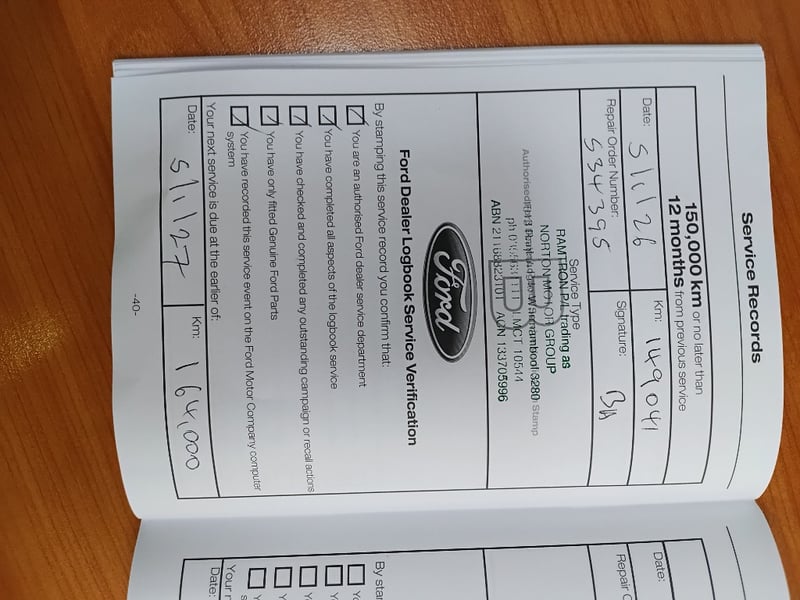 Service Records
150,000 km or no later than
12 months from previous service
Date: 5/1/26 Km: 149041
Repair Order Number: Signature:
534395 BA
Service Type
RAMTRON P/L trading as
NORTON MOTOR GROUP
Authorised Warrnambool 3280 Stamp
LMCT 10544
ABN ACN 133705996
Ford
Ford Dealer Logbook Service Verification
By stamping this service record you confirm that:
You are an authorised Ford dealer service department
You have completed all aspects of the logbook service
You have checked and completed any outstanding campaign or recall actions
You have only fitted Genuine Ford Parts
You have recorded this service event on the Ford Motor Company computer
system
Your next service is due at the earlier of:
Date: 5/1/27 Km: 164,000
-40-
Date:
Repair O
By sta
Yo
Y
Your n
s
Date: